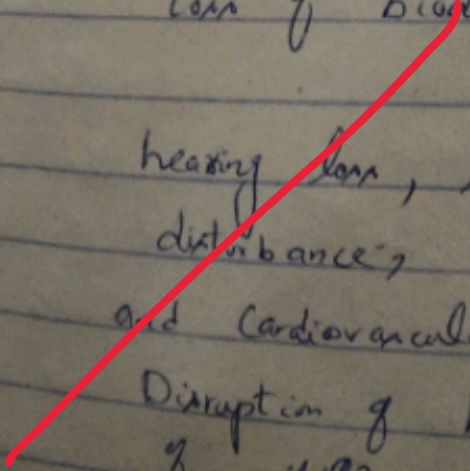 loss of Blood
hearing loss,
disturbance,
and Cardiovascul
Disruption of
of